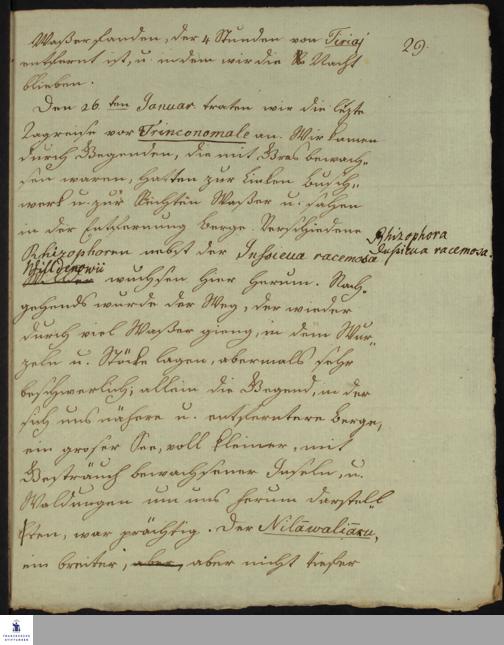 29.
Waßer fanden, der 4 Stunden von Tiriaj
entfernt ist, u. in dem wir die Nacht
blieben.
Den 26 ten Januar traten wir die lezte
Tagreise vor Trinconomale an. Wir kamen
durch Gegenden, die mit Gras bewach-
sen waren, hatten zur Linken Busch-
werk u. zur Rechten Waßer u. sahen
in der Entfernung Berge. Verschiedene
Rhizophoren nebst der Jussieua racemosa
Willdenowii
wuchsen hier herum. Nach-
gehends wurde der Weg, der wieder
durch viel Waßer gieng, in dem Wur-
zeln u. Stöcke lagen, abermals sehr
beschwerlich; allein die Gegend, in der
sich uns nähere u. entferntere Berge,
ein groser See, voll kleiner, mit
Gesträuch bewachsener Inseln, u.
Waldungen um uns herum darstell-
ten, war prächtig. Der Nilāwaliāru,
ein breiter, aber, aber nicht tiefer
Rhizophora
Jussieua racemosa.
FRANCKESCHE
STIFTUNGEN